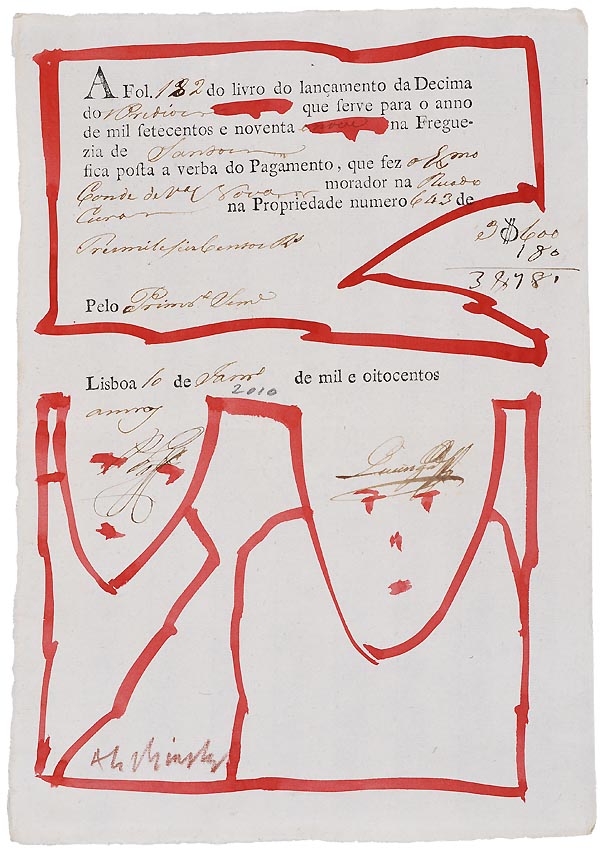 A Fol. 132 do livro do lançamento da Decima
do Predios que ſerve para o anno
de mil ſetecentos e noventa e nove na Fregue-
zia de Santos
fica poſta a verba do Pagamento, que fez o Exmo
Conde de Va Nova morador na Rua do
na Propriedade numero 643 de
3$600
180
Tres mil e seis Centos Rs
3$780
Pelo Primro Seme
Lisboa 10 de de mil e oitocentos
2010